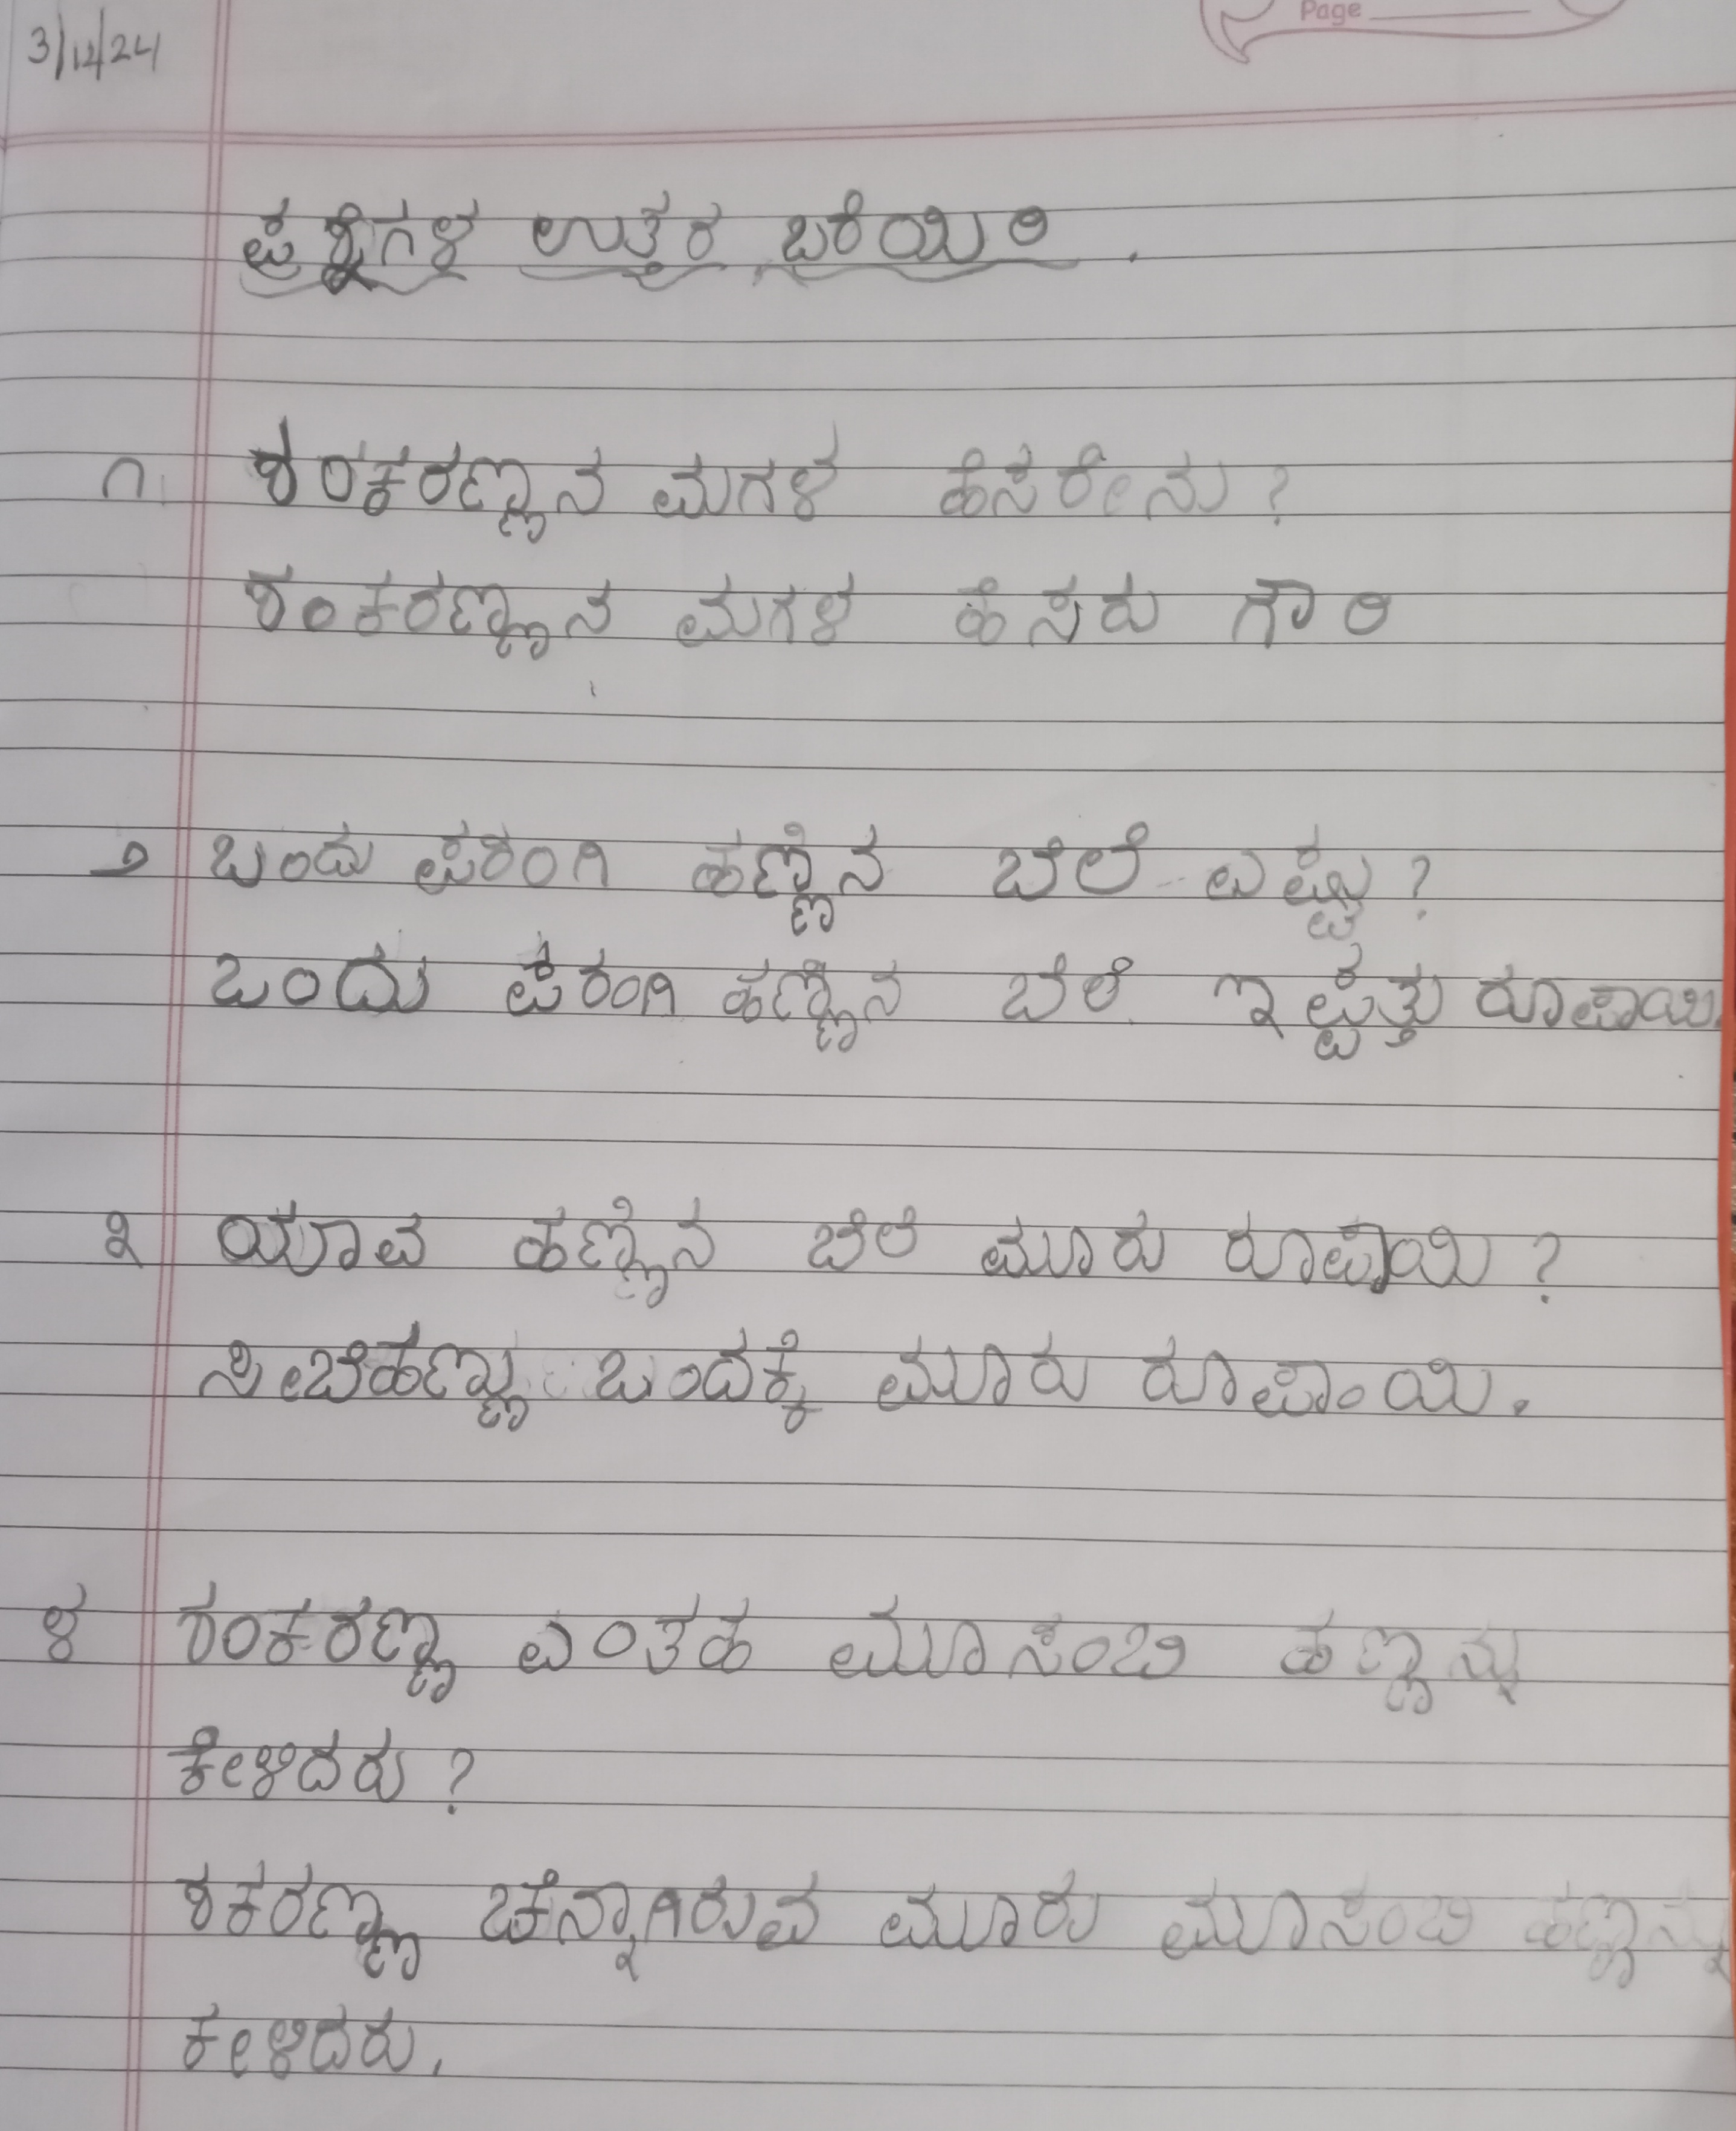 Page
3/12/24
ಪ್ರಶ್ನೆಗಳ ಉತ್ತರ ಬರೆಯಿರಿ .
೧. ಶಂಕರಣ್ಣನ ಮಗಳ ಹೆಸರೇನು ?
ಶಂಕರಣ್ಣನ ಮಗಳ ಹೆಸರು ಗೌರಿ
೨ ಒಂದು ಪರಂಗಿ ಹಣ್ಣಿನ ಬೆಲೆ ಎಷ್ಟು ?
ಒಂದು ಪರಂಗಿ ಹಣ್ಣಿನ ಬೆಲೆ ಇಪ್ಪತ್ತು ರೂಪಾಯಿ.
೩ ಯಾವ ಹಣ್ಣಿನ ಬೆಲೆ ಮೂರು ರೂಪಾಯಿ ?
ಸೀಬೆಹಣ್ಣು ಒಂದಕ್ಕೆ ಮೂರು ರೂಪಾಂಯಿ.
೪ ಶಂಕರಣ್ಣ ಎಂತಹ ಮೂಸಂಬಿ ಹಣ್ಣನ್ನು
ಕೇಳಿದರು ?
ಶಕರಣ್ಣ ಚೆನ್ನಾಗಿರುವ ಮೂರು ಮೂಸಂಬಿ ಹಣ್ಣನ್ನು
ಕೇಳಿದರು.